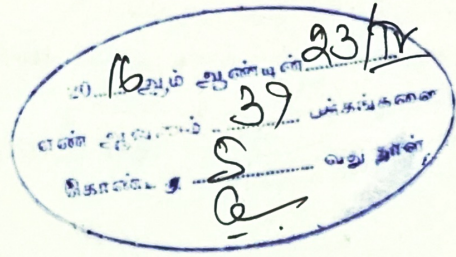 20 16 ஆம் ஆண்டின் 23/IV
எண் ஆவணம் 39 பக்கங்களை
கொண்டது 5 வது தாள்